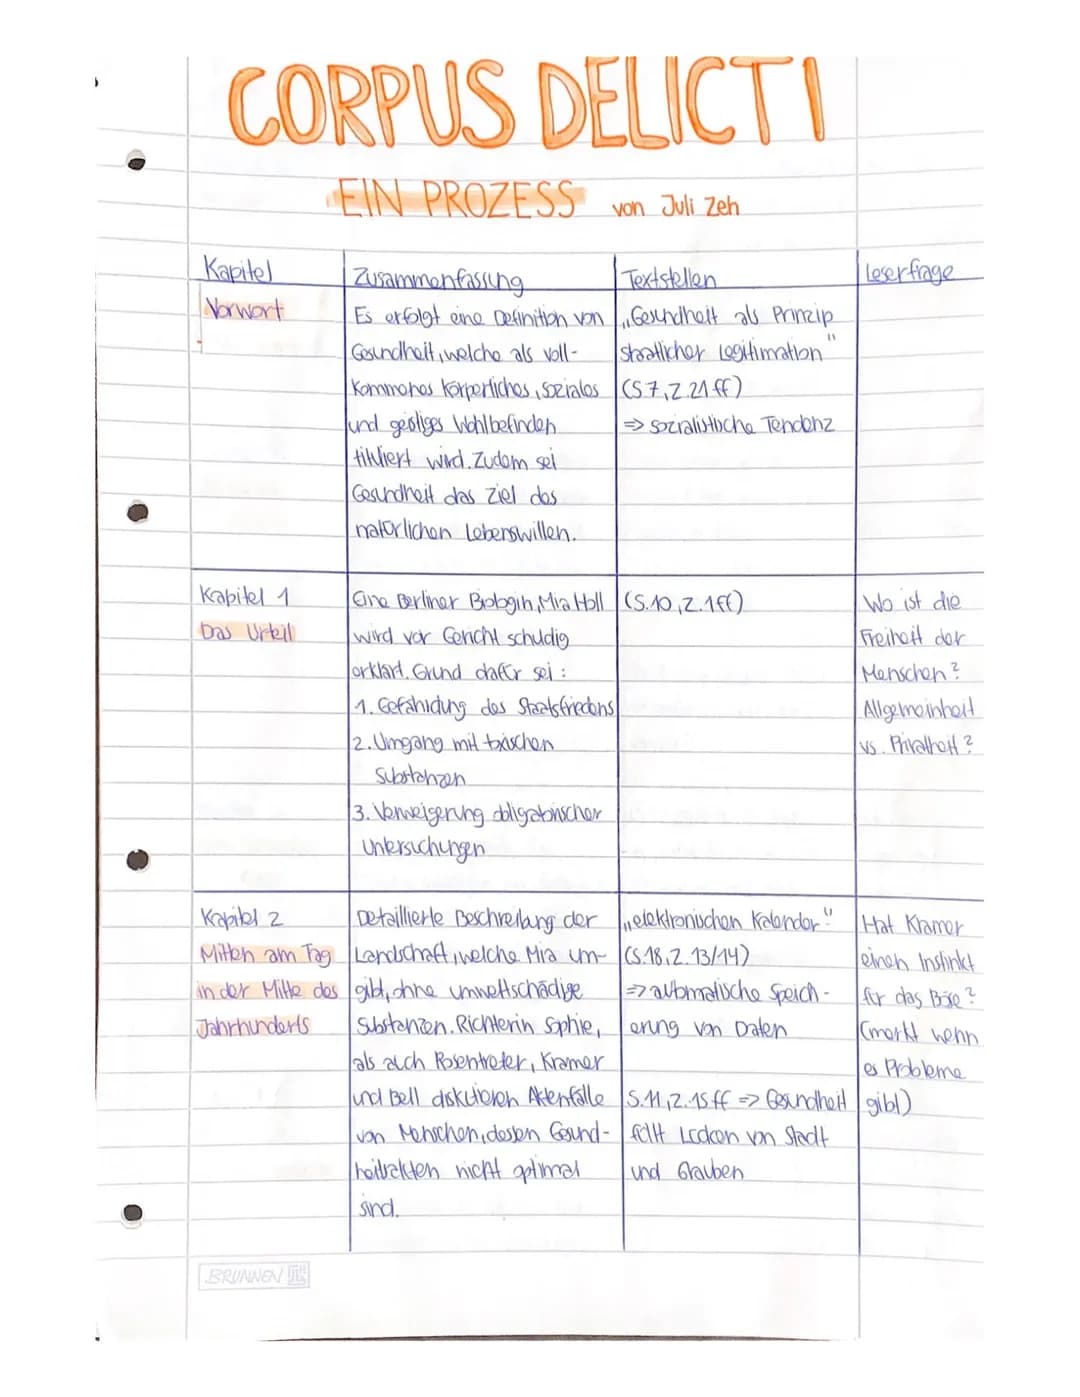 CORPUS DELICTI
EIN PROZESS von Juli Zeh
Kapitel
Zusammenfassung
Textstellen
Leserfrage
Vorwort
Es erfolgt eine Definition von
Gesundheit, welche als voll-
kommenes körperliches, soziales
und geistiges Wohlbefinden
tituliert wird. Zudem sei
Gesundheit das Ziel des
natürlichen Lebenswillen.
„Gesundheit als Prinzip
staatlicher Legitimation"
(S7, Z.21ff)
=> sozialistische Tendenz
Kapitel 1
Das Urteil
Eine Berliner Biologin, Mia Holl
wird vor Gericht schuldig
erklärt. Grund dafür sei:
1. Gefährdung des Staatsfriedens
2. Umgang mit toxischen
Substanzen
3. Verweigerung obligatorischer
Untersuchungen
(S.10, Z.1ff)
Wo ist die
Freiheit der
Menschen?
Allgemeinheit
vs. Privatheit?
Kapitel 2
Mitten am Tag
in der Mitte des
Jahrhunderts
Detaillierte Beschreibung der
Landschaft, welche Mia um-
gibt, ohne umweltschädige
Substanzen. Richterin Sophie,
als auch Rosentreter, Kramer
und Bell diskutieren Aktenfälle
von Menschen, dessen Gesund-
heitsakten nicht optimal
sind.
„elektronischen Kalender"
(S.18, Z.13/14)
=> automatische Speich-
erung von Daten
S.11, Z.15ff => Gesundheit
füllt Lücken von Stadt
und Glauben
Hat Kramer
einen Instinkt
für das Böse?
(merkt wenn
es Probleme
gibt)
BRUNNEN